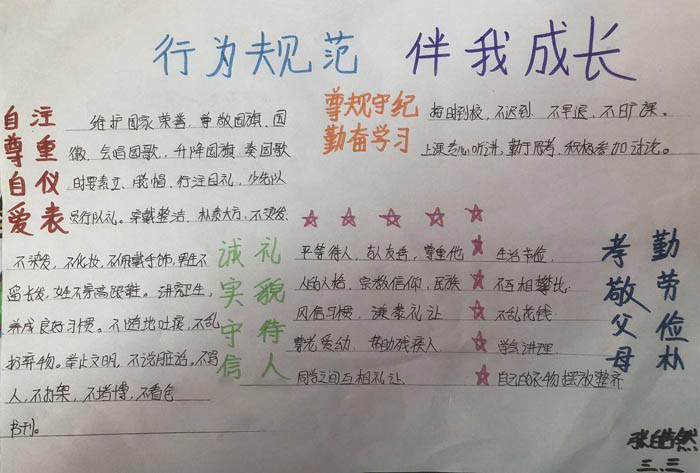 行为规范 伴我成长
自尊自爱
注重仪表
维护国家荣誉,尊敬国旗、国
徽,会唱国歌,升降国旗、奏国歌
时要肃立、脱帽、行注目礼,少先队
员行队礼。穿戴整洁、朴素大方,不烫发,
不染发,不化妆,不佩戴首饰,男生不
留长发,女生不穿高跟鞋。讲究卫生,
养成良好习惯。不随地吐痰,不乱
扔弃物。举止文明,不说脏话,不骂
人,不打架,不赌博,不看
书刊。
尊规守纪
勤奋学习
按时到校,不迟到 不早退,不旷课。
上课专心听讲,勤于思考,积极参加讨论。
诚实守信
礼貌待人
平等待人,与人友善,尊重他
人的人格、宗教信仰、民族
风俗习惯,谦恭礼让
尊老爱幼,帮助残疾人
同学之间互相礼让
生活节俭,
不互相攀比,
不乱花钱
学会料理
自己的衣物摆放整齐
孝敬父母
勤劳俭朴
张皓然
三、三